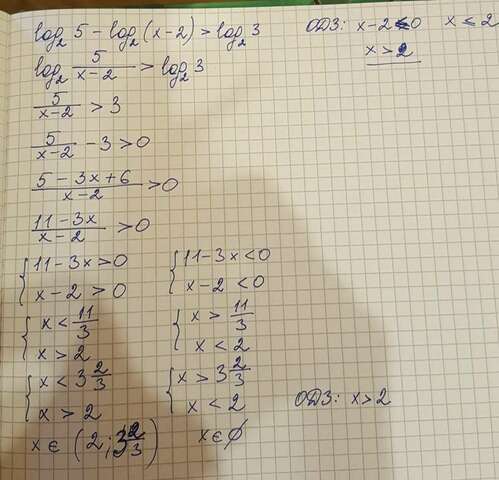 log₂ 5 - log₂ (x-2) > log₂ 3 ОДЗ: x-2 < 0 x ≤ 2
x > 2
log₂ 5/(x-2) > log₂ 3
5/(x-2) > 3
5/(x-2) - 3 > 0
(5-3x+6)/(x-2) > 0
(11-3x)/(x-2) > 0
{ 11-3x > 0 { 11-3x < 0
x-2 > 0 x-2 < 0
{ x < 11/3 { x > 11/3
x > 2 x < 2
{ x < 3 2/3 { x > 3 2/3
x > 2 x < 2 ОДЗ: x > 2
x ∈ (2; 3 2/3) x ∈ ∅